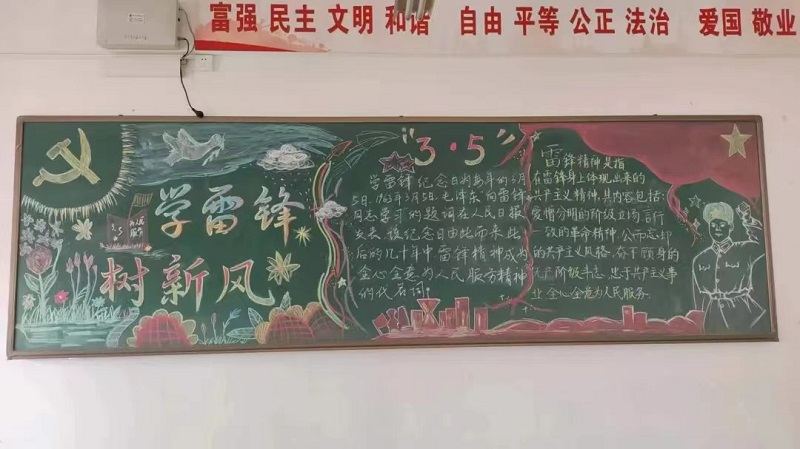 富强 民主 文明 和谐 自由 平等 公正 法治 爱国 敬业
学雷锋
树新风
"3·5"
学雷锋纪念日为每年的3月
5日.1963年3月5日,毛泽东"向雷锋
同志学习"的题词在人民日报
发表.该纪念日由此而来.此
后的几十年中雷锋精神成为
全心全意为人民服务精神
的代名词.
雷锋精神是指
在雷锋身上体现出来的
共产主义精神,其内容包括:
爱憎分明的阶级立场,言行
一致的革命精神,公而忘私
的共产主义风格,奋不顾身的
无产阶级斗志,忠于共产主义事
业,全心全意为人民服务.